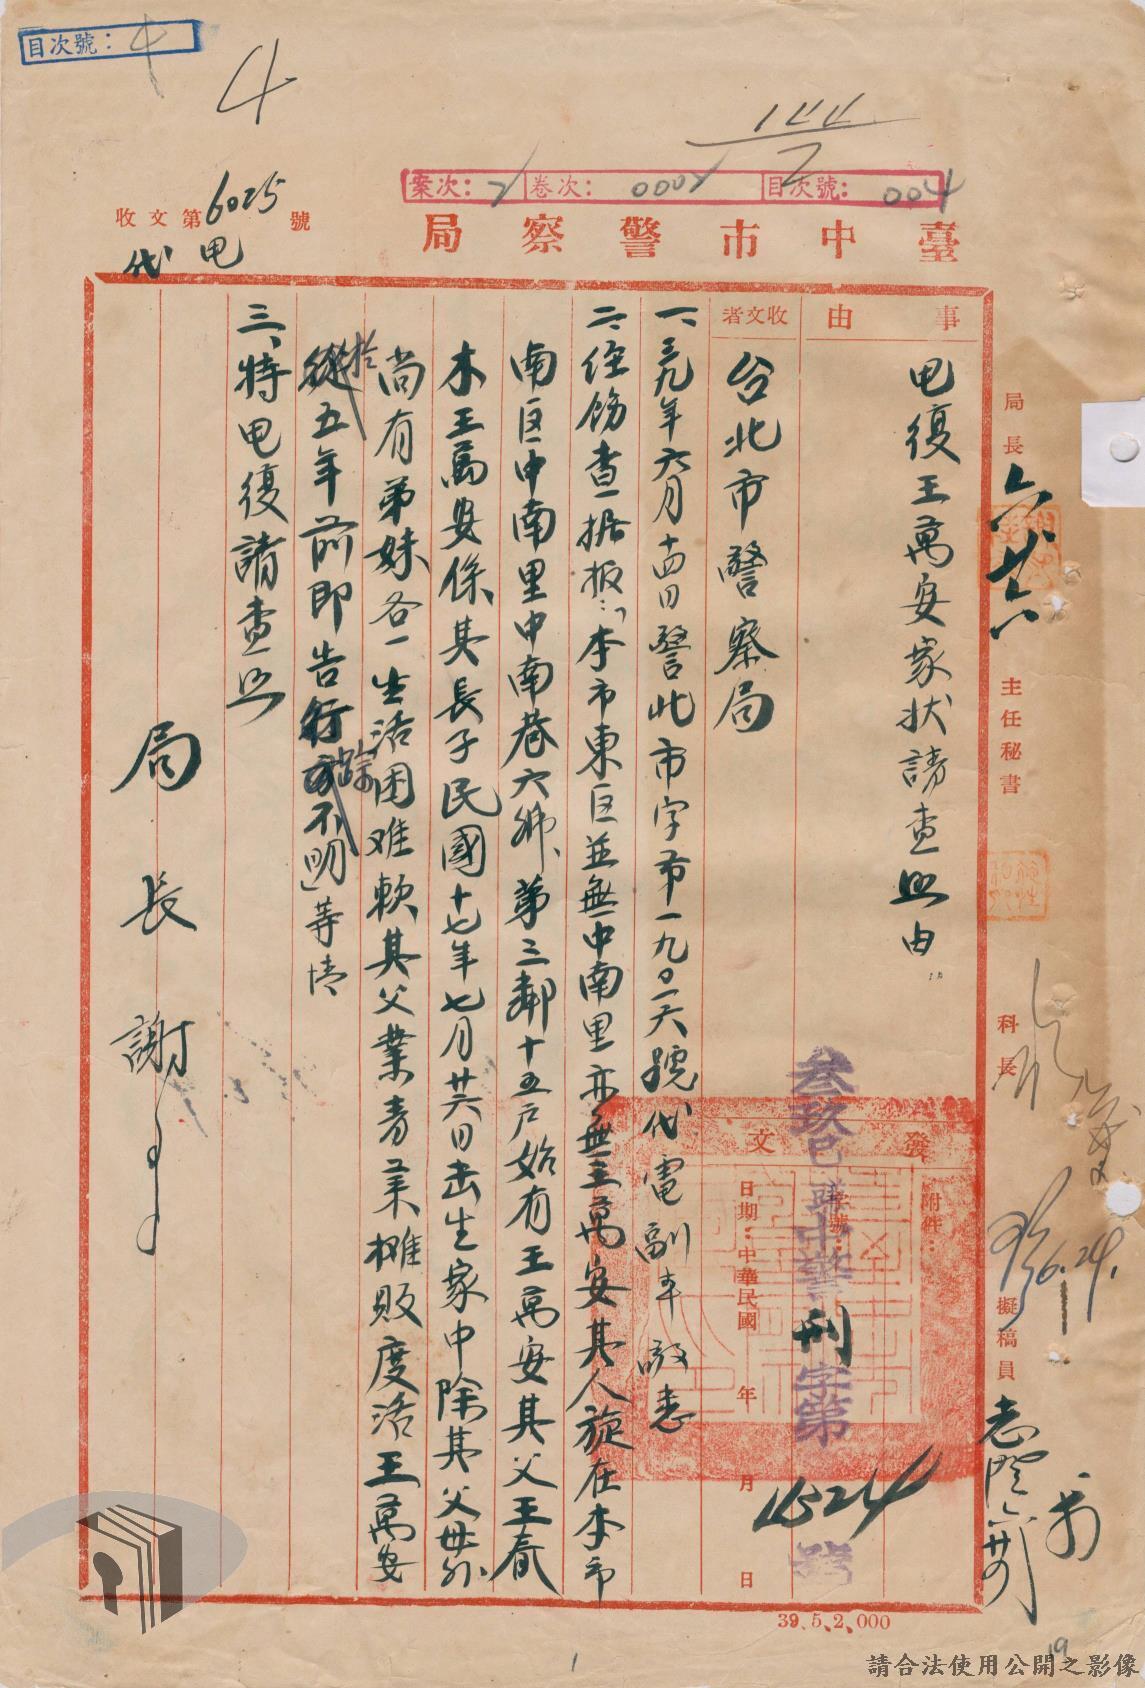 目次號：4
4
144
2
案次：2 卷次：0002 目次號：004
收文第6025號
代電
臺中市警察局
事由
電復王萬安家狀請查照由
收文者
台北市警察局
一、三九年六月十四日警北市字第一九〇一六號代電副本敬悉
二、經飭查據報：「本市東区並無中南里亦無王萬安其人旋在本市
南区中南里中南巷六號、第三鄰十五户始有王萬安其父王春
木王萬安係其長子民國十七年七月廿六日出生家中除其父母外
尚有弟妹各一生活困难賴其父業青菜攤販度活王萬安
於五年前即告失踪」等情
三、特電復請查照
局長謝
發文
附件：
字號：
日期：中華民國 年 月 日
叁玖巳 中警刑字第11524號
局長
六廿六
主任秘書
科長
6.24.
擬稿員
39.5.2,000
1
19
請合法使用公開之影像